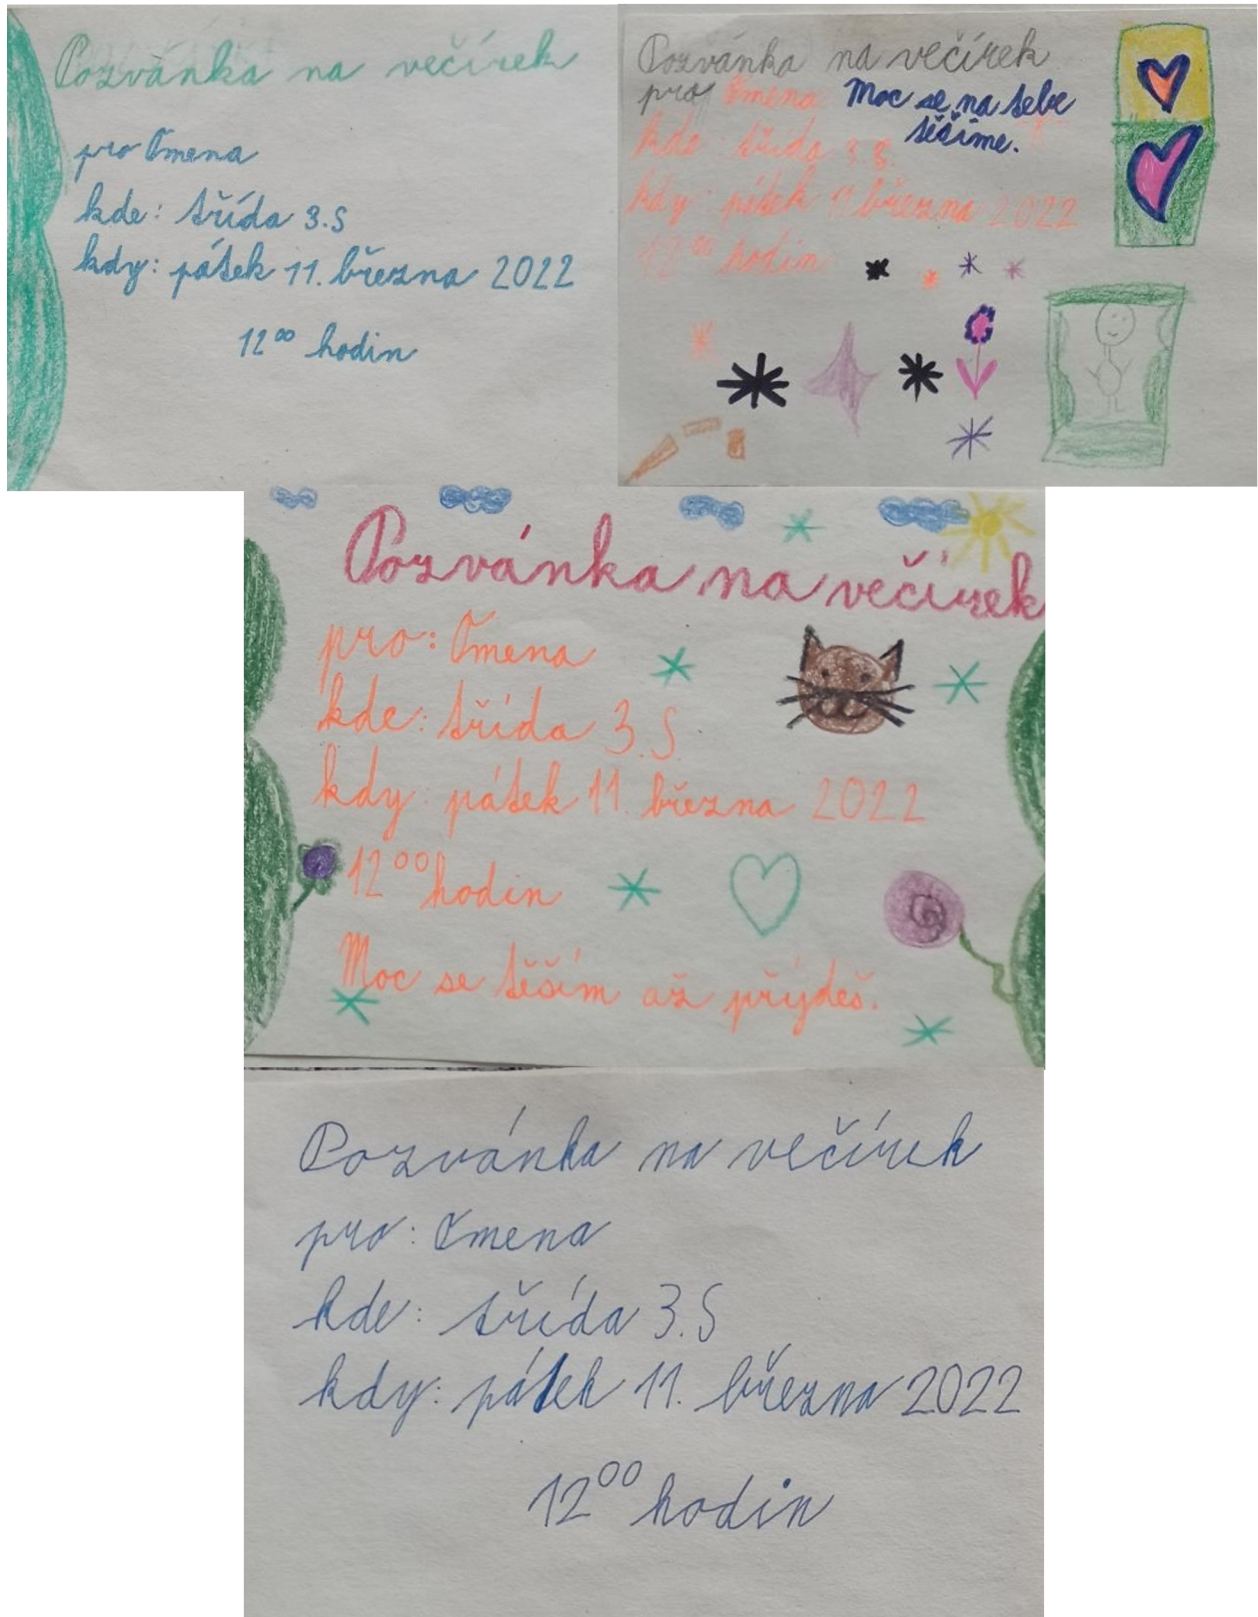 Pozvánka na večírek
pro Omena
kde: třída 3.S
kdy: pátek 11. března 2022
12⁰⁰ hodin
Pozvánka na večírek
pro Omena Moc se na tebe
těšíme.
kde: třída 3.S.
kdy: pátek 11 března 2022
12⁰⁰ hodin
Pozvánka na večírek
pro: Omena
kde: třída 3.S
kdy: pátek 11. března 2022
12⁰⁰ hodin
Moc se těším až přijdeš.
Pozvánka na večírek
pro: Omena
kde: třída 3.S
kdy: pátek 11. března 2022
12⁰⁰ hodin